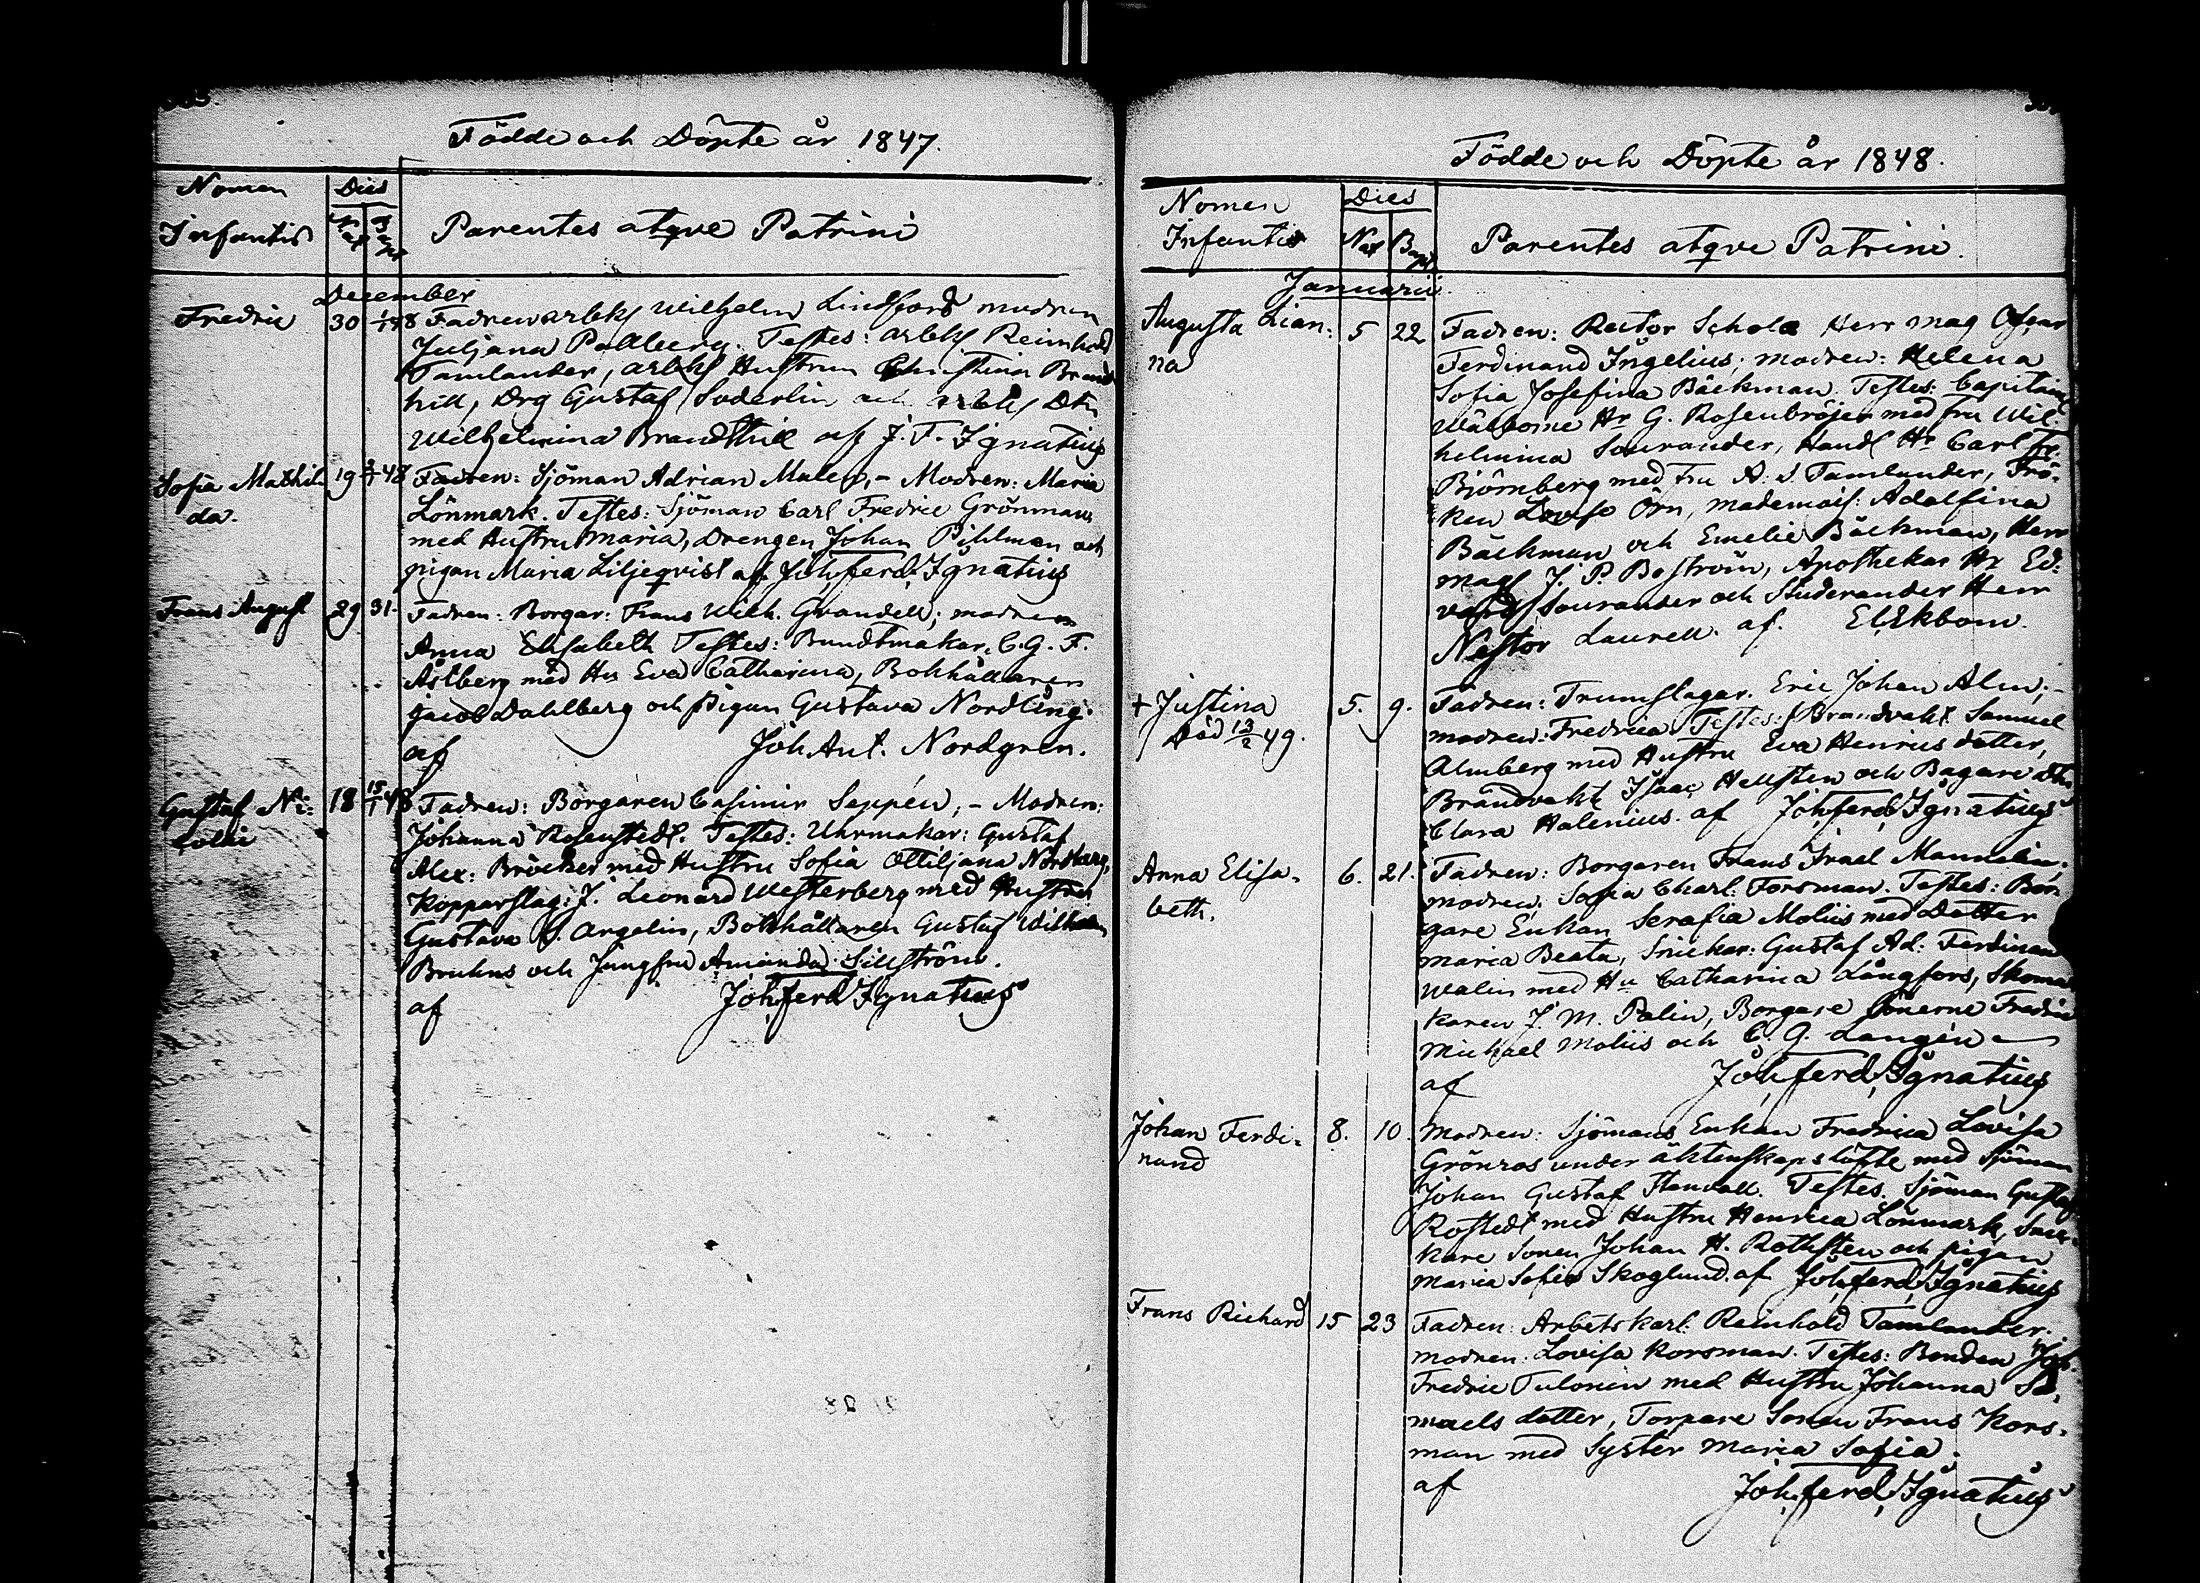 Födde och Döpte år 1847.
Nomen
Infantis
Dies
Nat
Bapt
Parentes atqve Patrini
December
Fredric 30 1/1 48 Fadren arbk Wilhelm Lindfors modren
Juljana Pallberg. Testes: arbk Reinhold
Tamlander, arbk Hustrun Christina Brand
hill, Drg Gustaf Soderlin och arbk Dtr
Wilhelmina Brandthill af J. F. Ignatius
Sofia Mathil 19 48 Fadren: Sjöman Adrian Malen,- Modren: Maria
da. Lönmark. Testes: Sjöman Carl Fredric Grönman
med Hustru Maria, Drengen Johan Pihlman och
pigan Maria Liljeqvist af Joh. ferd. Ignatius
Frans August 29 31. Fadren: Borgar: Frans Wilh. Grandell; modren
Anna Elisabeth Testes: Bundtmakar. C. G. F.
Åslberg med Hu Eva Catharina, Bokhållaren
Jacob Dahlberg och Pigan Gustava Nordling.
af Joh Ant. Nordgren.
Gustaf Ni: 18 15/1 48 Fadren: Borgaren Casimir Seppén,- Modren:
colai Johanna Rosenstedt. Testes: Uhrmakar: Gustaf
Alex: Bröcker med Hustru Sofia Ottiljana Norsberg,
Kopparslag: J. Leonard Westerberg med Hustru
Gustava S. Argelin, Bokhållaren Gustaf Wilhelm
Bruhns och Jungfru Amanda Sillström.
af Joh. ferd. Ignatius
Födde och Döpte år 1848.
Nomen
Infantis
Dies
Nat
Bapt
Parentes atqve Patrini.
Januarii.
Augusta Lian: 5 22 Fadren: Rector Scholæ Herr Mag Oscar
na Ferdinand Ingelius; modren: Helena
Sofia Josefina Bäckman. Testes: Capitain
Wälborne Hr G. Rosenbröijer med fru Wil:
helmina Sourander, Handl Hr Carl Fr.
Björnberg med Fru A. S. Tamlander, Frö-
ken Lovise Örn, mademois: Adalfina
Bäckman och Emelie Bäckman, Herr
mag J. P. Boström, Apothekar Hr Ed:
vard Sourander och Studerander Herr
Nestor Laurell. af. El. Ekbom.
+ Justina 5. 9. Fadren: Trumslagar. Eric Johan Alm;-
Död 13/2 49. modren: Fredrica Testes: Brandvakt Samuel
Almberg med Hustru Eva Henricsdotter,
Brandvakt Isaac Hellsten och Bagare Dtr
Clara Halenius. af Joh. ferd. Ignatius
Anna Elisa- 6. 21. Fadren: Borgaren Frans Israel Mannelin,
beth. modren. Sofia Charl. Forsman. Testes: Bor
gare Enkan Serafia Moliis med Dotter
Maria Beata, Snickar: Gustaf Ad. Ferdinan
Walin med Hu Catharina Långfors, Skoma
karen J. M. Palin, Borgare Sönerne Fredric
Michael Moliis och C. G. Langén
af Joh. ferd. Ignatius
Johan Ferdi- 8. 10. Modren: Sjömans Enkan Fredrica Lovisa
nand Grönros under äktenskapslöfte med Sjöman
Johan Gustaf Stenvall. Testes. Sjöman Gustaf
Rostedt med Hustru Henrica Lönmark, Snic-
kare Sonen Johan H. Rothsten och pigan
Maria Sofia Skoglund. af Joh. ferd. Ignatius
Frans Richard 15 23 Fadren: Arbetskarl. Reinhold Tamlander.
modren: Lovisa Korsman. Testes: Bonden Joh.
Fredric Tulonen med Hustru Johanna Sa-
muels dotter, Torpare Sonen Frans Kors-
man med Syster Maria Sofia.
af Joh. ferd. Ignatius